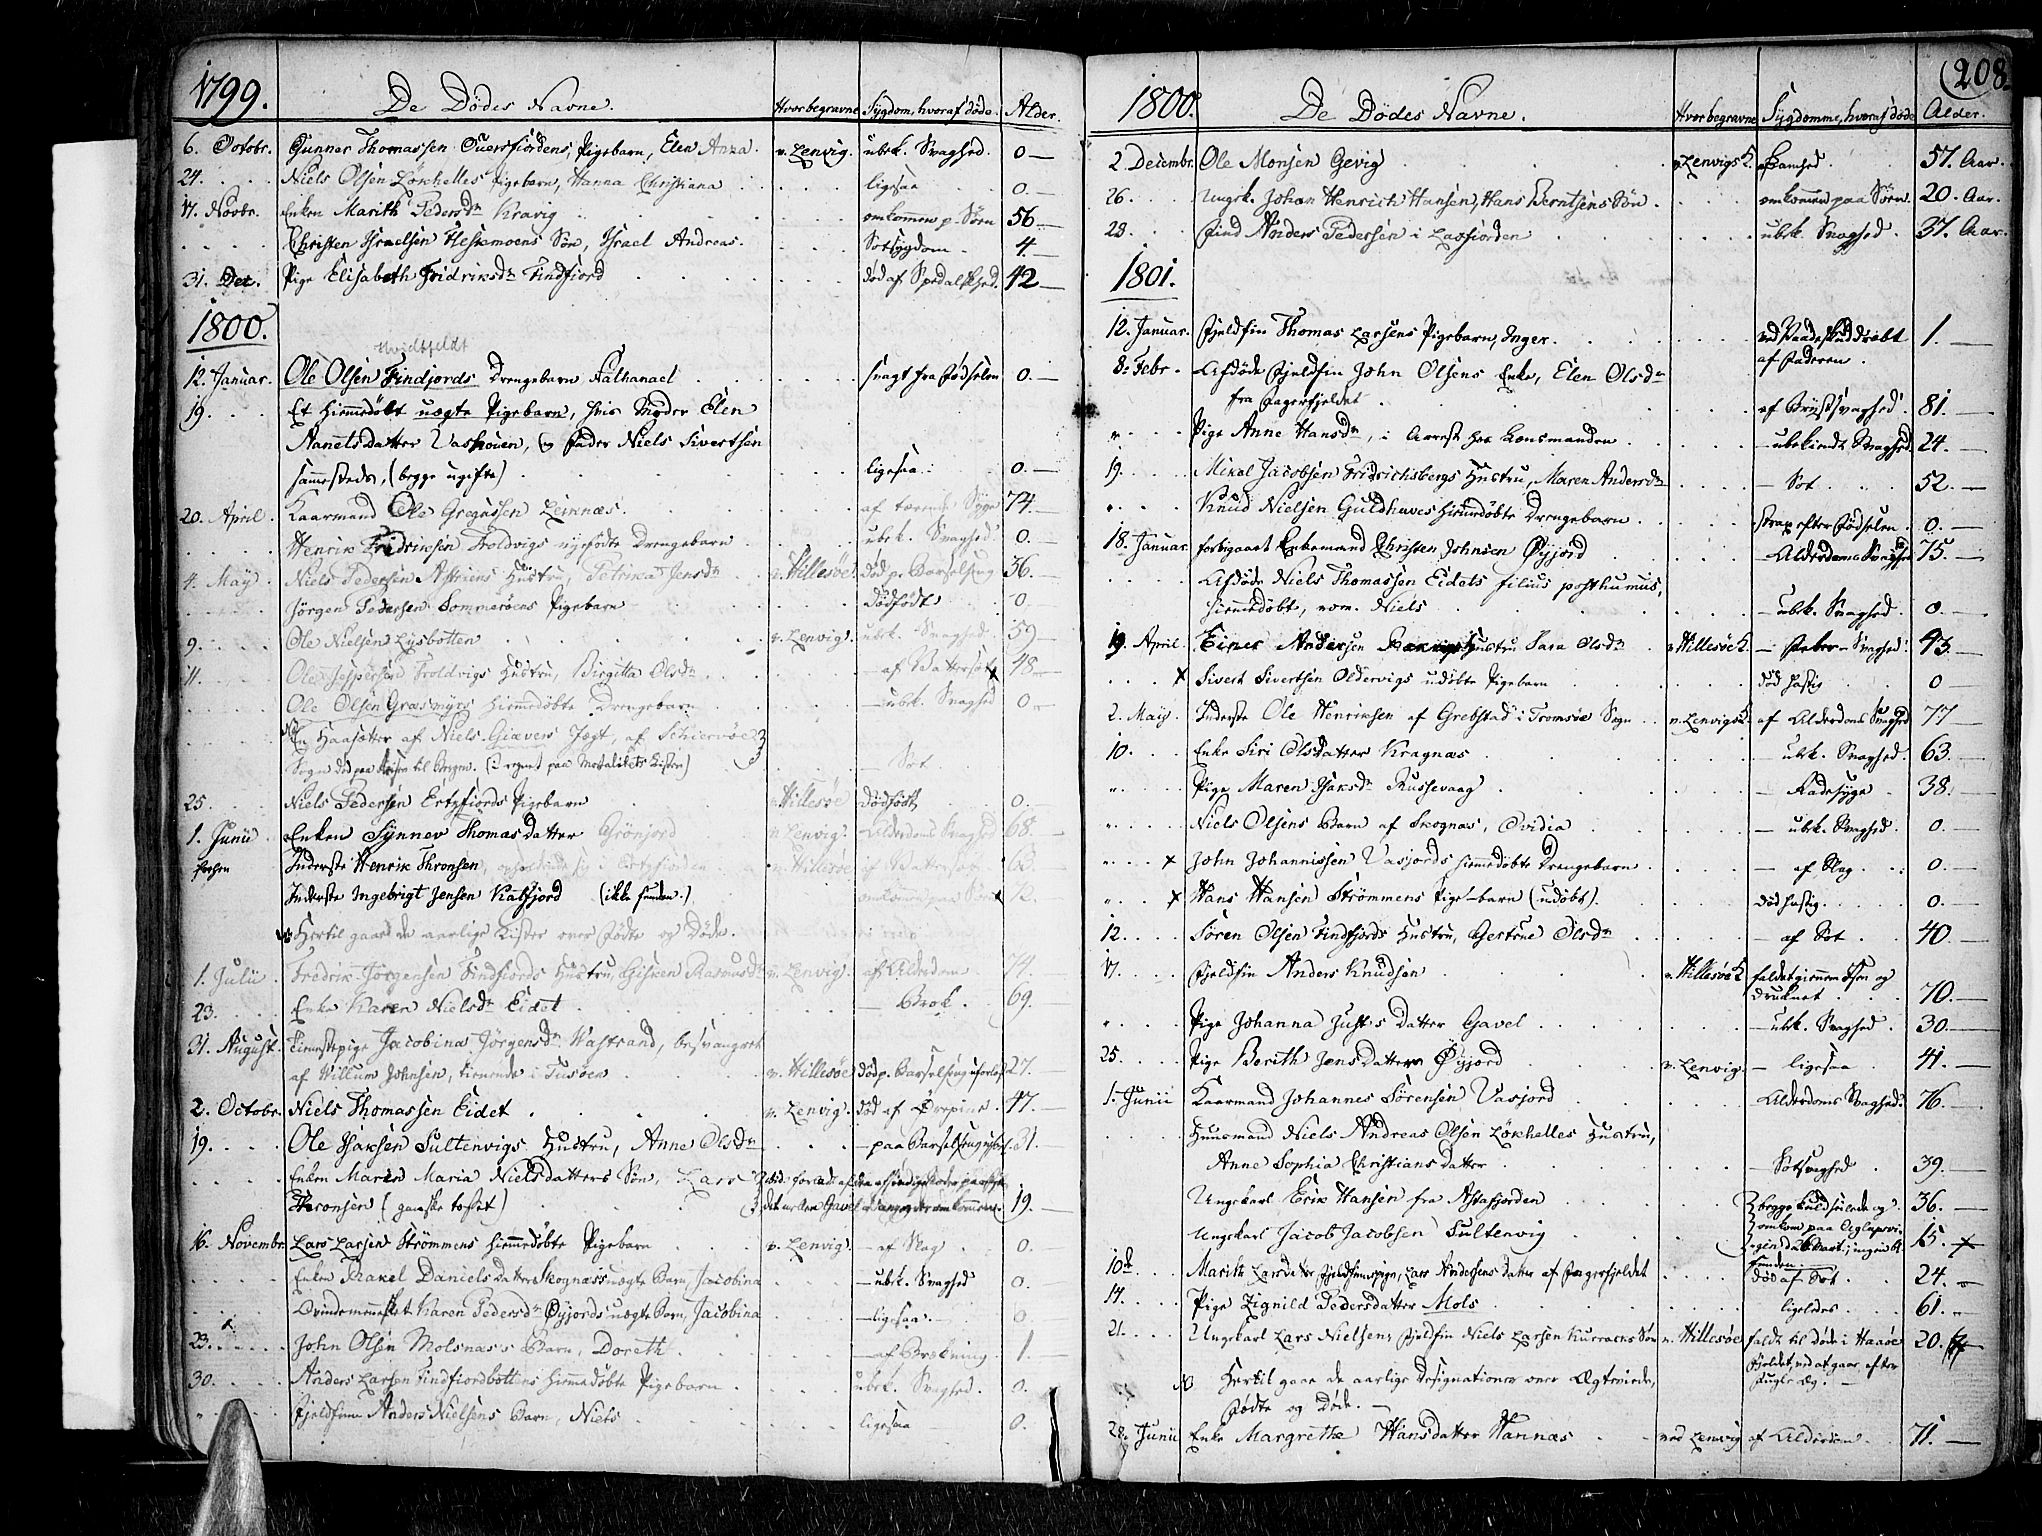 1799. De Dödes Navne. Hvor begravne Sygdom, hvoraf døde. Alder.
6. Octobr. Gunner Thomassen Ouersfiordens, Pigebarn, Elen Anna. v. Lenvig. ubek. Svaghed. 0 —
24. Niels Olsen Löchelles Pigebarn, Hanna Christiana ligesaa 0. —
17. Novbr. Enken Marith Pedersdr Kravig omkomen p. Söen 56 —
Christen Israelsen Hestemoens Sön, Israel Andreas. Sotsygdom 4. —
31. Det. Pige Elisabeth Fridriksdr Findfiord död af Spedalskhed. 42 —
1800.
Hvidtfeldt
12. Januar. Ole Olsen Findjords Drengebarn Nathanael svagt fra Födselen 0. —
19. Et hiemmedöbt uægte Pigebarn, hvis Moder Elen
Nanetsdatter Vashouen, og Fader Niels Sivertsen
sammesteds, (begge ugifte) ligesaa 0. —
20. April. Kaarmand Ole Gregussen Leiknæs. af tærende Syge 74. —
Henrik Fridriksen Troldvigs nyefödte Drengebarn ubek. Svaghed. 0. —
4. May. Niels Pedersen Hustru, Petrika Jensdr v. Hillesöe död p. Barselseng 36. —
Jörgen Pedersen Sommaröens Pigebarn dödfödt 0
9. Ole Nielsen Lysbotten v. Lenvig. ubek. Svaghed. 59 —
11. Ole Jeppersen Troldvigs Hustru, Birgitta Olsdr — af Vattersot 48 —
Ole Olsen Græsmyrs hiemmedöbte Drengebarn — ubek. Svaghed 0 —
En Haasæter af Niels Giævers Jægt, af Schiervöe
Sogn död paa Reisen til Bergen. (I regnet paa Mortalitets Listen) — Sot
25. Niels Pedersen Ertzfiords Pigebarn v. Hillesöe dödfödt 0.
1. Junii Enken Synnev Thomasdatter Grönjord v. Lenvig. Alderdoms Svaghed 68. —
Inderste Henrik Thronsen, v. Hillesöe 63
Inderste Ingebrigt Jensen Katfjord (ikke funden.) omkomen paa Söen
Hertil gaaer de aarlige Lister over Födte og Döde.
1. Julii. Fredrik Jörgensen Findfiords Hustru, Giscen Rasmusdr v. Lenvig. af Alderdom 74.
23. Enke Karen Nielsdr Eidet — Brok. 69.
31. August. Tienestepige Jacobina Jörgensdr Vastrand, besvangret
af Willum Johnsen, tienende i Tusöen v. Hillesöe död p. Barselseng uforlöst 27.
2. Octobr. Niels Thomassen Eidet v. Lenvig. död af 47. —
19. Ole Isaksen Sultenvigs Hustru, Anne Olsdr — paa Barselseng 31.
Enken Maren Maria Nielsdatters Sön, Lars
Haronsen (ganske tosset) 19. —
16. Novembr. Lars Larsen Strömmens hiemmedöbte Pigebarn v. Lenvig. — af Slag 0.
Enken Rakel Danielsdatter Skognæss uægte Barn, Jacobina — ubek. Svaghed 0.
Qvindemennesket Karen Pedersdr Öyjords uægte Barn, Jacobina — ligesaa 0
23. John Olsen Molsnæs's Barn, Doreth. — af Brækning. 1. —
30. Anders Larsen Findfiordbottens hiemmedöbte Pigebarn. ubek. Svaghed. 0.
Fjeldfinn Anders Nielsens Barn, Niels ligesaa 0.
1800. De Dödes Navne. Hvor begravne Sygdomme, hvoraf døde Alder. 208.
2. Decembr. Ole Monsen Gevig v. Lenvigs K. 57. Aar.
26. Ungk. Johan Henrich Hansen, Hans Berntsens Sön. omkommen paa Söen. 20. Aar.
28. Find Anders Pedersen i Laxfiorden ubek. Svaghed. 37. Aar.
1801.
12. Januar. Fjeldfin Thomas Larsens Pigebarn, Inger. ved Vaadeskud dræbt 1. —
af Faderen.
8. Febr. Afdöde Fjeldfin John Olsens Enke, Elen Olsdr
fra Fagerfjeldet af Brystsvaghed. 81. —
" Pige Anne Hansdr, i Arrest hos Lensmanden — ubekiendt Svaghed 24. —
19. Mikal Jacobsen Fridrichsbergs Hustru, Maren Andersdr — Sot 52. —
" Knud Nielsen Guldhaves hiemmedöbte Drengebarn. strax efter Födselen. 0. —
18. Januar. forbigaaet Enkemand Christen Johnsen Öyjord — Alderdoms Svaghed 75. —
Afdöde Niels Thomassen Eidets filius posthumus,
hiemmedöbt, nom. Niels — ubek. Svaghed. 0. —
19. April. Einer Andersen Hustru Sara Olsdr v. Hillesöe K. — Feber-Svaghed. 43 —
x Sivert Sivertsen Oldervigs udöbte Pigebarn död hastig 0 —
2. May. Inderste Ole Henriksen af Grebstad i Tromsöe Sogn v. Lenvigs K. af Alderdoms Svaghed 77 —
10. Enke Siri Olsdatter Kragnæs — ubek. Svaghed. 63. —
" Pige Maren Isaksdr Russevaag — Radesyge 38. —
" Niels Olsens Barn af Skognæs, Ovidia — ubek. Svaghed. 0. —
" x John Johannissen Vasjords hiemmedöbte Drengebarn — af Slag. 0. —
" x Hans Hansen Strömmens Pige-barn (udöbt). död hastig. 0. —
12. Sören Olsen Findfjords Hustru, Gertrue Olsdr — af Sot 40. —
17. Fjeldfin Anders Knudsen v. Hillesöe K faldet giennem Isen og
druknet 70. —
" Pige Johanna Just's Datter Gavel — ubek. Svaghed. 30. —
25. Pige Berith Jensdatter Öyjord v. Lenvig. — ligesaa 41. —
1. Junii Kaarmand Johannes Sörensen Vasjord Alderdoms Svaghed. 76. —
Huusmand Niels Andreas Olsen Löchelles Hustru,
Anne Sophia Christiansdatter — Sotsvaghed 39. —
Ungekarl Erik Hansen fra Astafjorden begge kuldseilede og 36. —
Ungekarl Jacob Jacobsen Sultenvig omkom paa 15. x
funden.
10de Marith Larsdatter Fjeldfinnepige, Lars Andersens Datter af Fagerfjeldet död af Sot 24. —
14. Pige Zignild Pedersdatter Mols ligeledes 61. —
21. Ungekarl Lars Nielsen, Fjeldfin Niels Larsen Kurracks Sön v. Hillesöe faldt til döde i Haaöe 20.
Fjeldet, ved at gaae efter
Fugle Æg. —
NB Hertil gaae de aarlige Designationer over Ægteviede,
Födte og Döde. —
28. Junii Enke Margrethe Hansdatter Hannæs ved Lenvig af Alderdom. 71. —